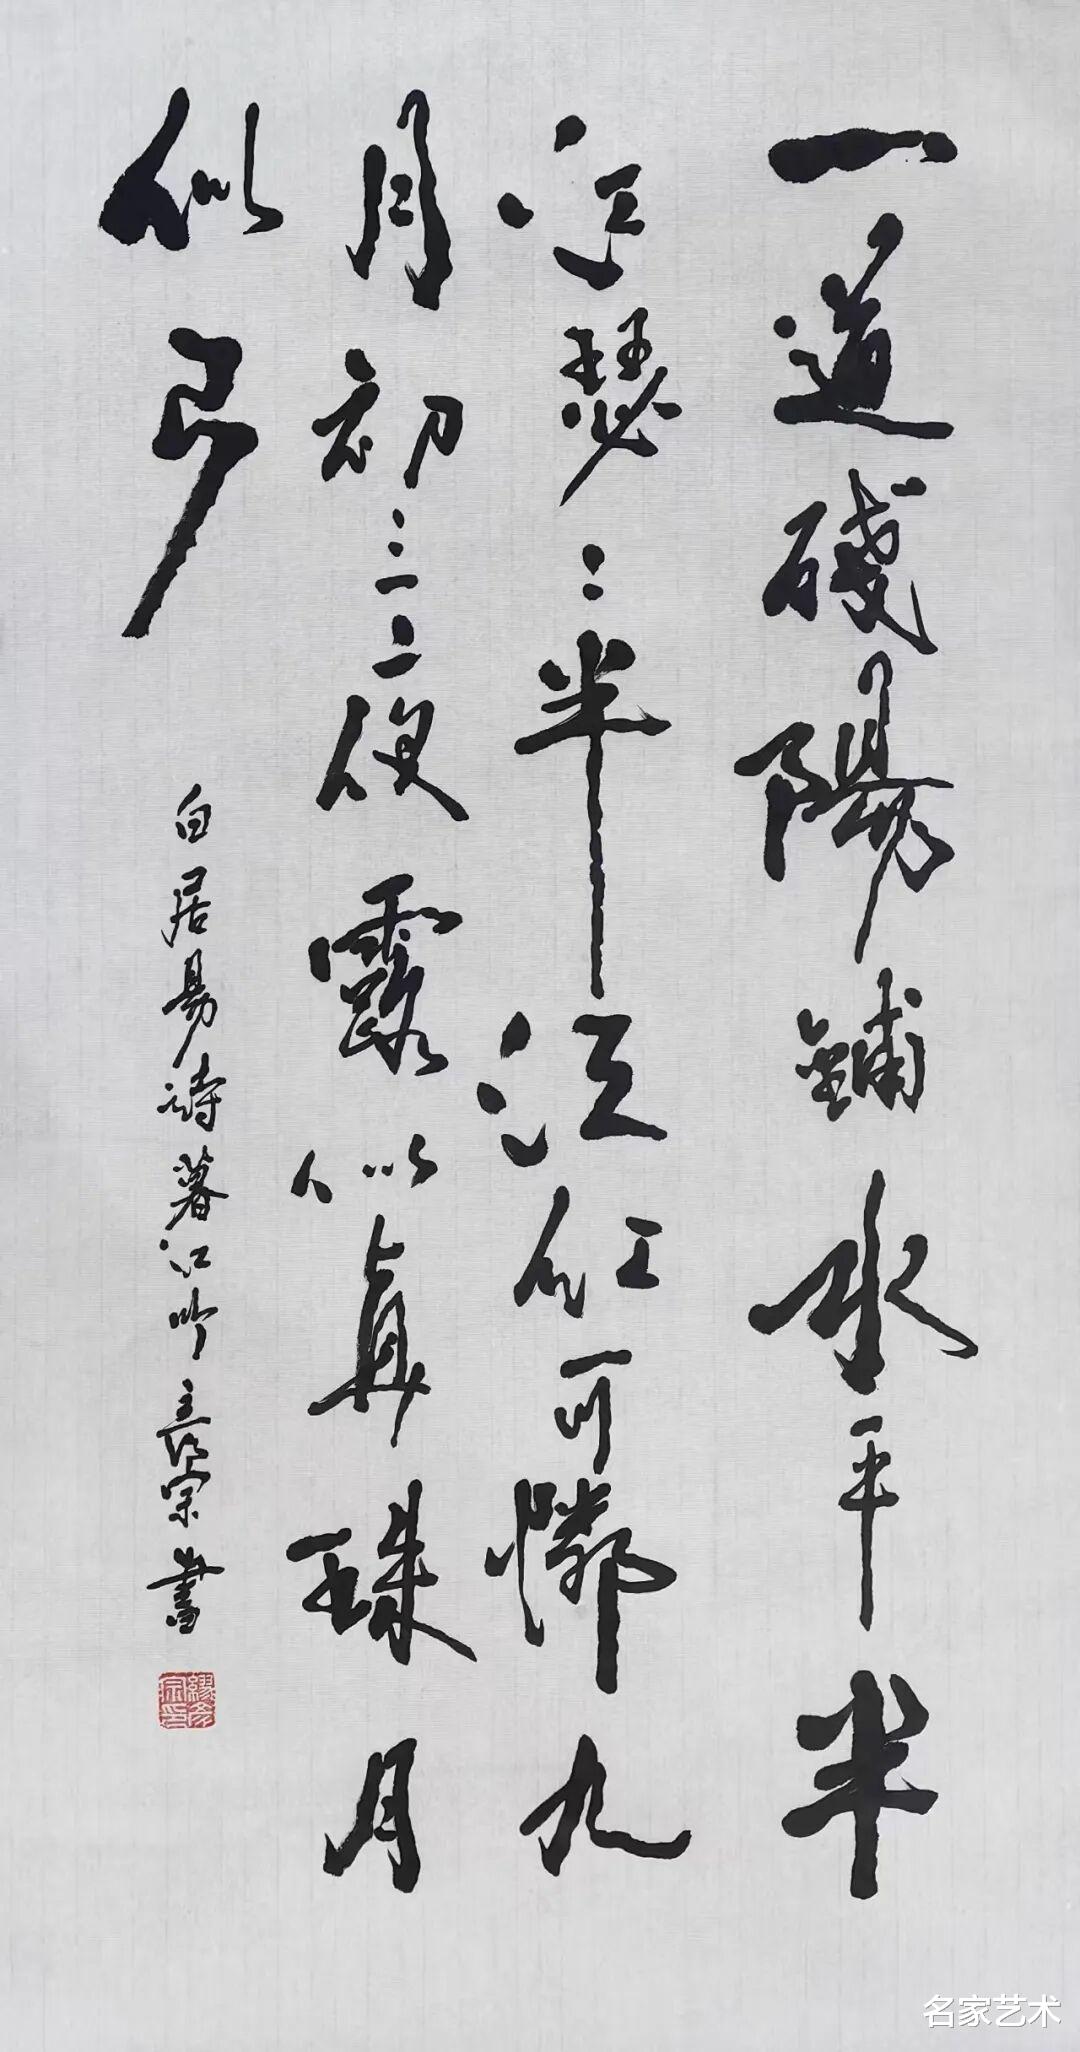 一道残陽鋪水平半
江瑟〻半江红可憐九
月初三夜露似真珠月
似弓
白居易詩暮江吟 彦宗書
繆彦宗印
名家艺术